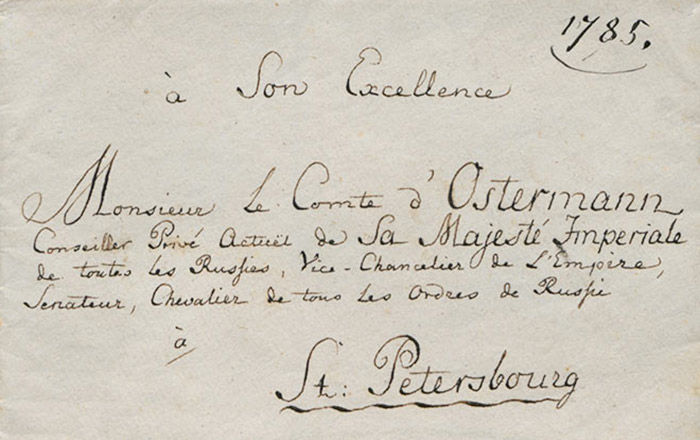 1785.
à Son Excellence
Monsieur Le Comte d'Ostermann
Conseiller Privé Actuël de Sa Majesté Imperiale
de toutes les Russies, Vice-Chancelier de L'Empire,
Senateur, Chevalier de tous les Ordres de Russie
à
St: Petersbourg